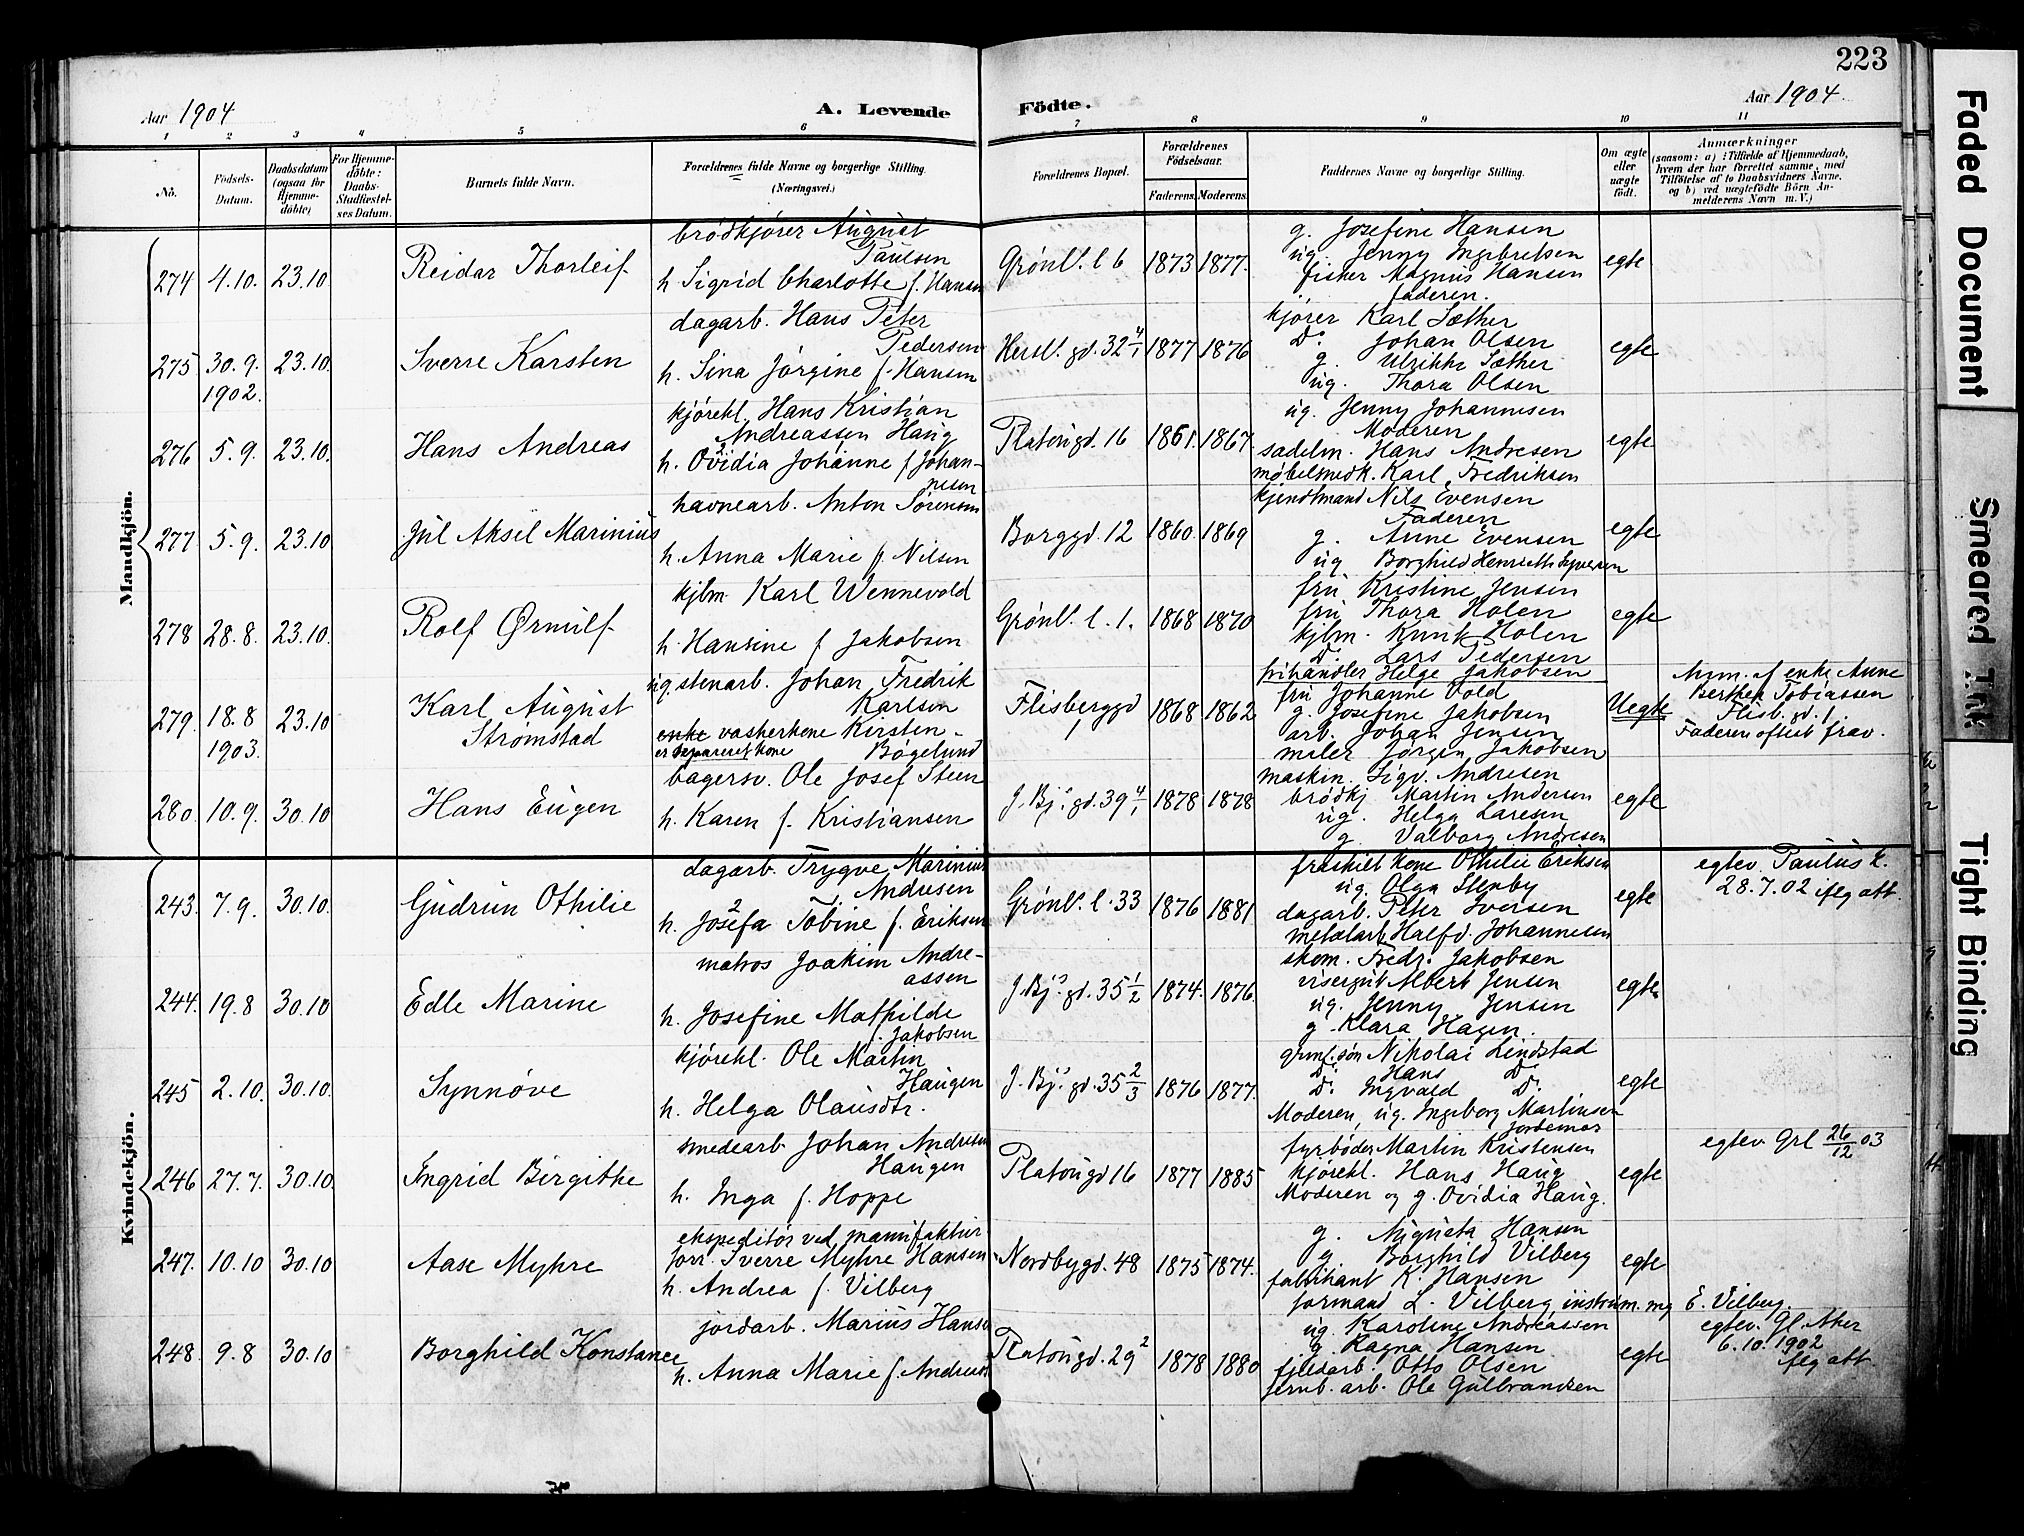 223
Aar 1904
A. Levende
Födte.
Aar 1904.
1 2 3 4 5 6 7 8 9 10 11
No.
Födsels-Datum.
Daabsdatum (ogsaa for Hjemme-döbte)
For Hjemme-döbte: Daabs-Stadfæstel-ses Datum.
Barnets fulde Navn.
Forældrenes fulde Navne og borgerlige Stilling. (Næringsvei.)
Forældrenes Bopæl.
Forældrenes Födselsaar.
Faderens. Moderens.
Faddernes Navne og borgerlige Stilling.
Om ægte eller uægte födt.
Anmærkninger
(saasom: a) : Tilfælde af Hjemmedaab,
hvem der har forrettet samme, med
Tilföielse af to Daabsvidners Navne,
og b) ved uægtefödte Börn An-
melderens Navn m. V.)
Mandkjön.
274 4.10. 23.10 Reidar Thorleif
brödkjører August
Paulsen
h. Sigrid Charlotte f. Hansen
Grønl. l 6 1873 1877.
g. Josefine Hansen
ug. Jenny Ingebretsen
fisker Magnus Hansen
faderen.
egte
275 30.9. 1902. 23.10. Sverre Karsten
dagarb. Hans Peter
Pedersen
h. Sina Jørgine f. Hansen
Hersl. gd. 32 4/1 1877 1876
kjører Karl Sæther
Do Johan Olsen
g. Ulrikke Sæther
ug. Thora Olsen
egte
276 5.9. 23.10. Hans Andreas
kjørekl. Hans Kristian
Andreassen Haug
h. Ovidia Johanne f. Johan-
nesen
Platougd. 16 1861. 1867.
ug. Jenny Johannesen
Moderen
sadelm. Hans Andresen
møbelsnedk. Karl Fredriksen
egte
277 5.9. 23.10 Jul Aksel Marinius
havnearb. Anton Sørensen
h. Anna Marie f. Nilsen
Borggd. 12 1860. 1869
kjendtmand Nils Evensen
Faderen
g. Anne Evensen
ug Borghild Henriette Syversen
egte
278 28.8. 23.10. Rolf Ørnulf
kjbm. Karl Wennevold
h. Hansine f. Jakobsen
Grønl. l. 1. 1868 1870
fru Kristine Jensen
fru Thora Holen
kjbm. Knut Holen
Do. Lars Pedersen
egte
279 18.8 1903. 23.10 Karl August
Strømstad
ug. stenarb. Johan Fredrik
Karlsen
enke vaskerkone Kirsten
er separeret kone Bøgelund
Flisberggd 1 1868 1862
frihandler Helge Jakobsen
fru Johanne Vold
g. Josefine Jakobsen
arb. Johan Jensen
maler Jørgen Jakobsen
Uegte
Anm. af enke Anne
Berthea Tobiassen
Flisb. gd. 1.
Faderen oftest frav.
280. 10.9. 30.10 Hans Eugen
bagersv. Ole Josef Steen
h. Karen f. Kristiansen
J. Bj.s gd. 39 4/1 1878 1878
maskin. Sigv. Andresen
brødkj Martin Andersen
ug. Helga Larsen
g. Valborg Andresen
egte
Kvindekjön.
243. 7.9. 30.10. Gudrun Othilie
dagarb. Trygve Marinius
Andresen
h. Josefa Tobine f. Eriksen
Grønl. l. 33 1876 1881
fraskilt kone Othilie Eriksen
ug. Olga Stenby
dagarb. Peter Iversen
metalarb. Halfd. Johannesen
egte
egtev Paulus k.
28.7.02 iflg att.
244. 19.8 30.10 Edle Marine
matros Joakim Andre-
assen
h. Josefine Mathilde
f. Jakobsen
J. Bj.s gd. 35 1/2 1874. 1876.
skom. Fredr. Jakobsen
visergut Albert Jensen
ug. Jenny Jensen
g. Klara Hagen.
egte
245 2.10. 30.10. Synnøve
kjørekl. Ole Martin
Haugen
h. Helga Olausdtr.
J. Bj.s gd. 35 2/3 1876 1877.
Nikolai Lindstad
Do. Hans Do.
Do. Ingvald Do.
Moderen, ug. Ingeborg Martinsen
jordemor
egte
246 27.7. 30.10. Ingrid Birgithe
smedearb Johan Andresen
Haugen
h. Inga f. Hoppe
Platougd 16 1877 1885
fyrbøder Martin Kristensen
kjørekl. Hans Haug
Moderen og g. Ovidia Haug.
egte
egtev Grl 26/12 03
247. 10.10 30.10 Aase Myhre
ekspeditör ved manufaktur-
forr. Sverre Myhre Hansen
h. Andrea f. Vilberg
Nordbygd. 48 1875 1874.
g. Augusta Hansen
g Borghild Vilberg
fabrikant K. Hansen
formand L. Vilberg, instrum. mg E. Vilberg.
egte
248. 9.8 30.10 Borghild Konstance
jordarb. Marius Hansen
h. Anna Marie f. Andreas
Platougd. 29 2 1878 1880
ug. Karoline Andreassen
g. Ragna Hansen
fjeldarb. Otto Olsen
jernb. arb. Ole Gulbrandsen
egte
egtev. Gl. Aker
6.10.1902
iflg att
Faded Document
Smeared Ink
Tight Binding